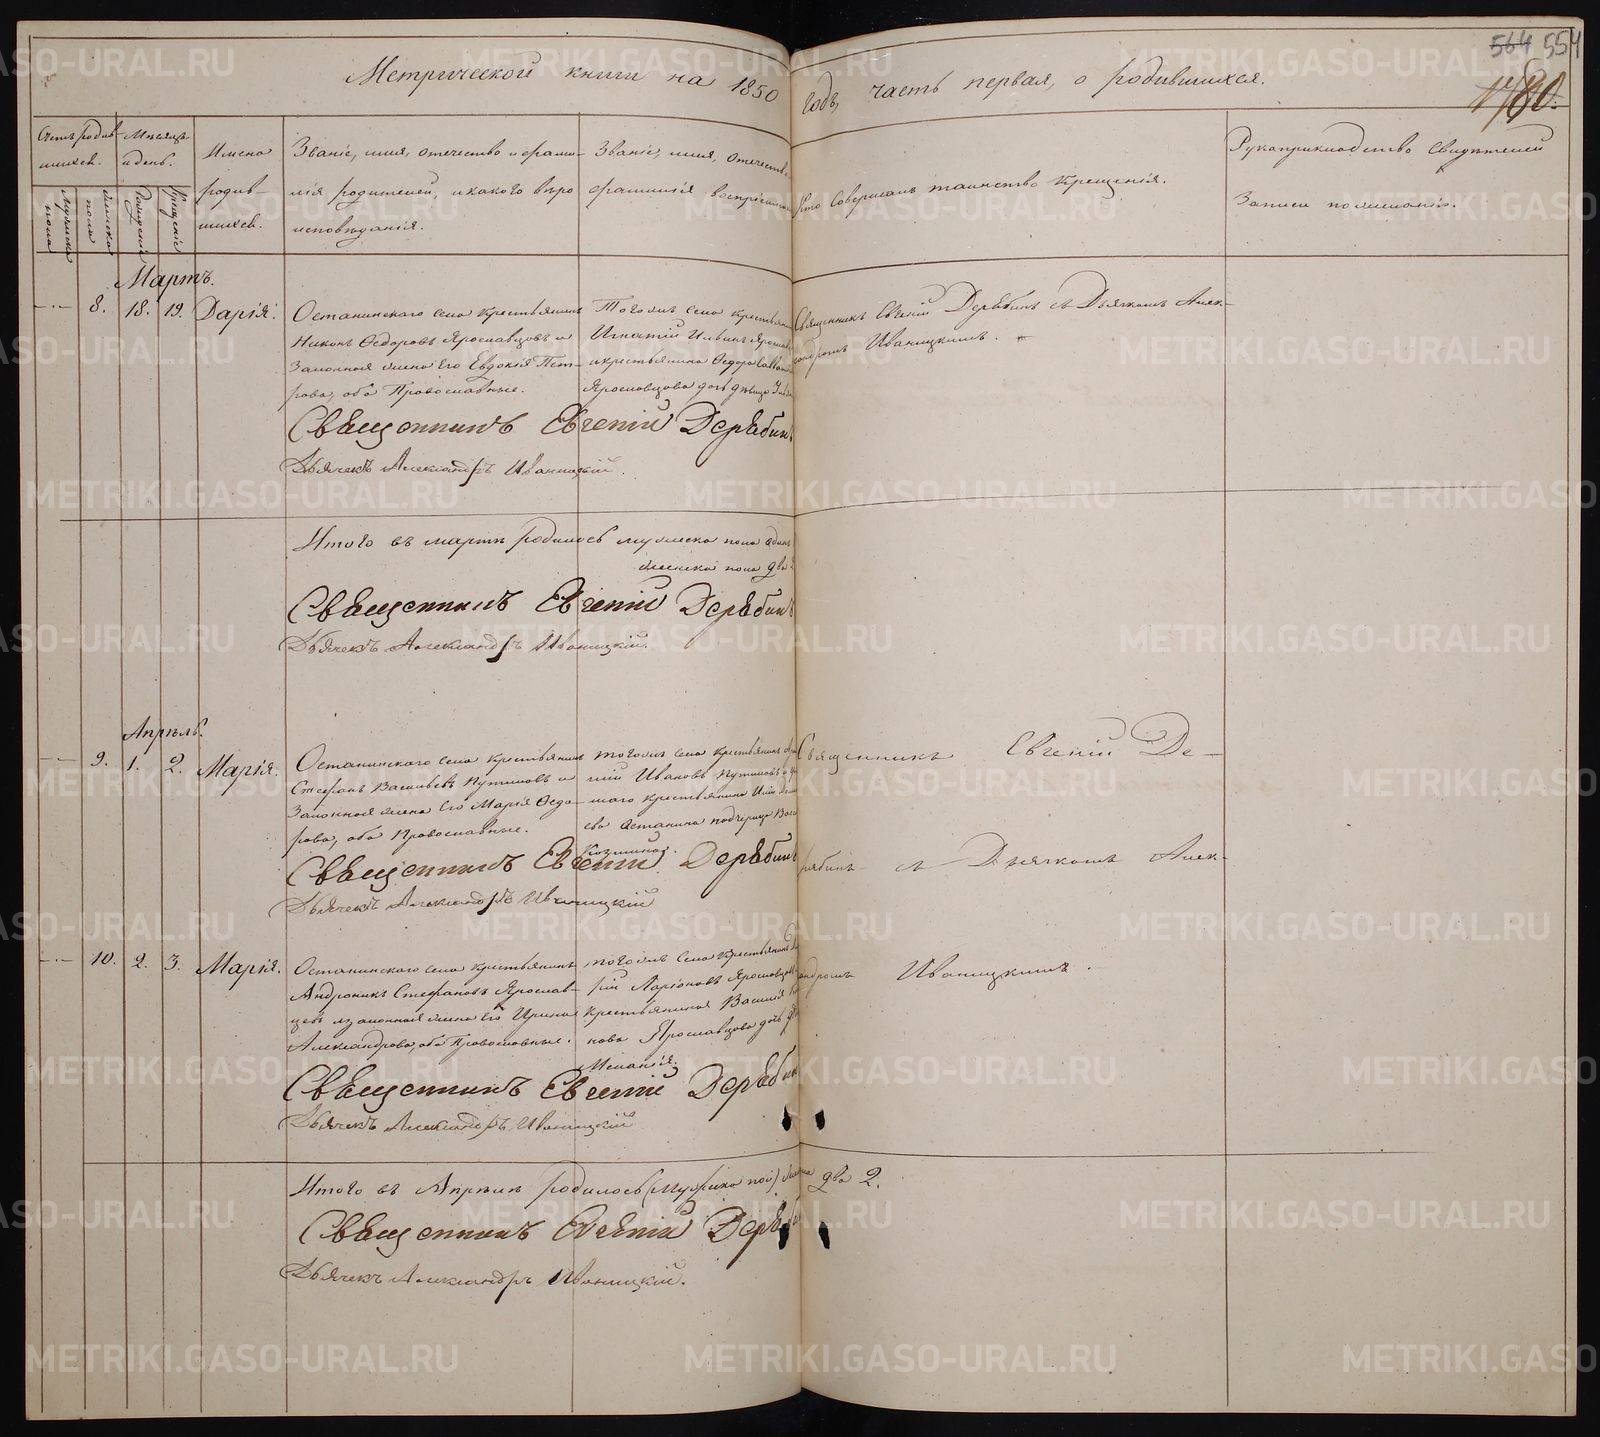 564 554
1780.
Метрической книги на 1850 годъ, часть первая, о родившихся.
Счетъ родившихся.
Мужеска пола
Женска пола
Мѣсяцъ и день.
Рожденія
Крещенія
Имена родившихся.
Званіе, имя, отечество и фами-
лія родителей, и какого вѣро
исповѣданія.
Званіе, имя, отечество
фамилія воспріемни
Кто совершалъ таинство крещенія.
Рукоприкладство свидѣтелей
записи по желанію.
Мартъ.
8. 18. 19. Дарія.
Останинскаго села крестьянинъ
Никонъ Ѳедоровъ Ярославцовъ и
законная жена его Евдокія Пет-
рова, оба Православные.
Тогоже села крестьяни
Игнатій Ильинъ Яросла
и крестьянина Ѳедора Савва
Ярославцова дочь дѣвица
Священникъ Евгеній Дерябинъ съ Дьячкомъ Алек-
сандромъ Иваницкимъ.
Священникъ Евгеній Дерябинъ
Дьячекъ Александръ Иваницкій.
Итого въ мартѣ родилось мужеска пола одинъ
женска пола два
Священникъ Евгеній Дерябинъ
Дьячекъ Александръ Иваницкій.
Апрѣль.
9. 1. 2. Марія.
Останинскаго села крестьянинъ
Стефанъ Васильевъ Путиловъ и
законная жена его Марія Ѳедо-
рова, оба Православные.
тогоже села крестьянинъ
тій Ивановъ Путиловъ и
маго крестьянина
ева Останина падчерица
Козминах.
Священникъ Евгеній Де-
рябинъ съ Дьячкомъ Алек-
Священникъ Евгеній Дерябинъ
Дьячекъ Александръ Иваницкій
10. 2. 3. Марія.
Останинскаго села крестьянинъ
Андроникъ Стефановъ Ярослав-
цевъ и законная жена его Ирина
Александрова, оба Православные.
тогоже села крестьянинъ
рій Ларіоновъ Ярославцовъ
крестьянина Василія
нова Ярославцова дочь
Меланія.
андромъ Иваницкимъ.
Священникъ Евгеній Дерябин
Дьячекъ Александръ Иваницкій
Итого въ Апрѣлѣ родилось (мужеска пол) женска два 2.
Священникъ Евгеній Деряб
Дьячекъ Александръ Иваницкій.
METRIKI.GASO-URAL.RU